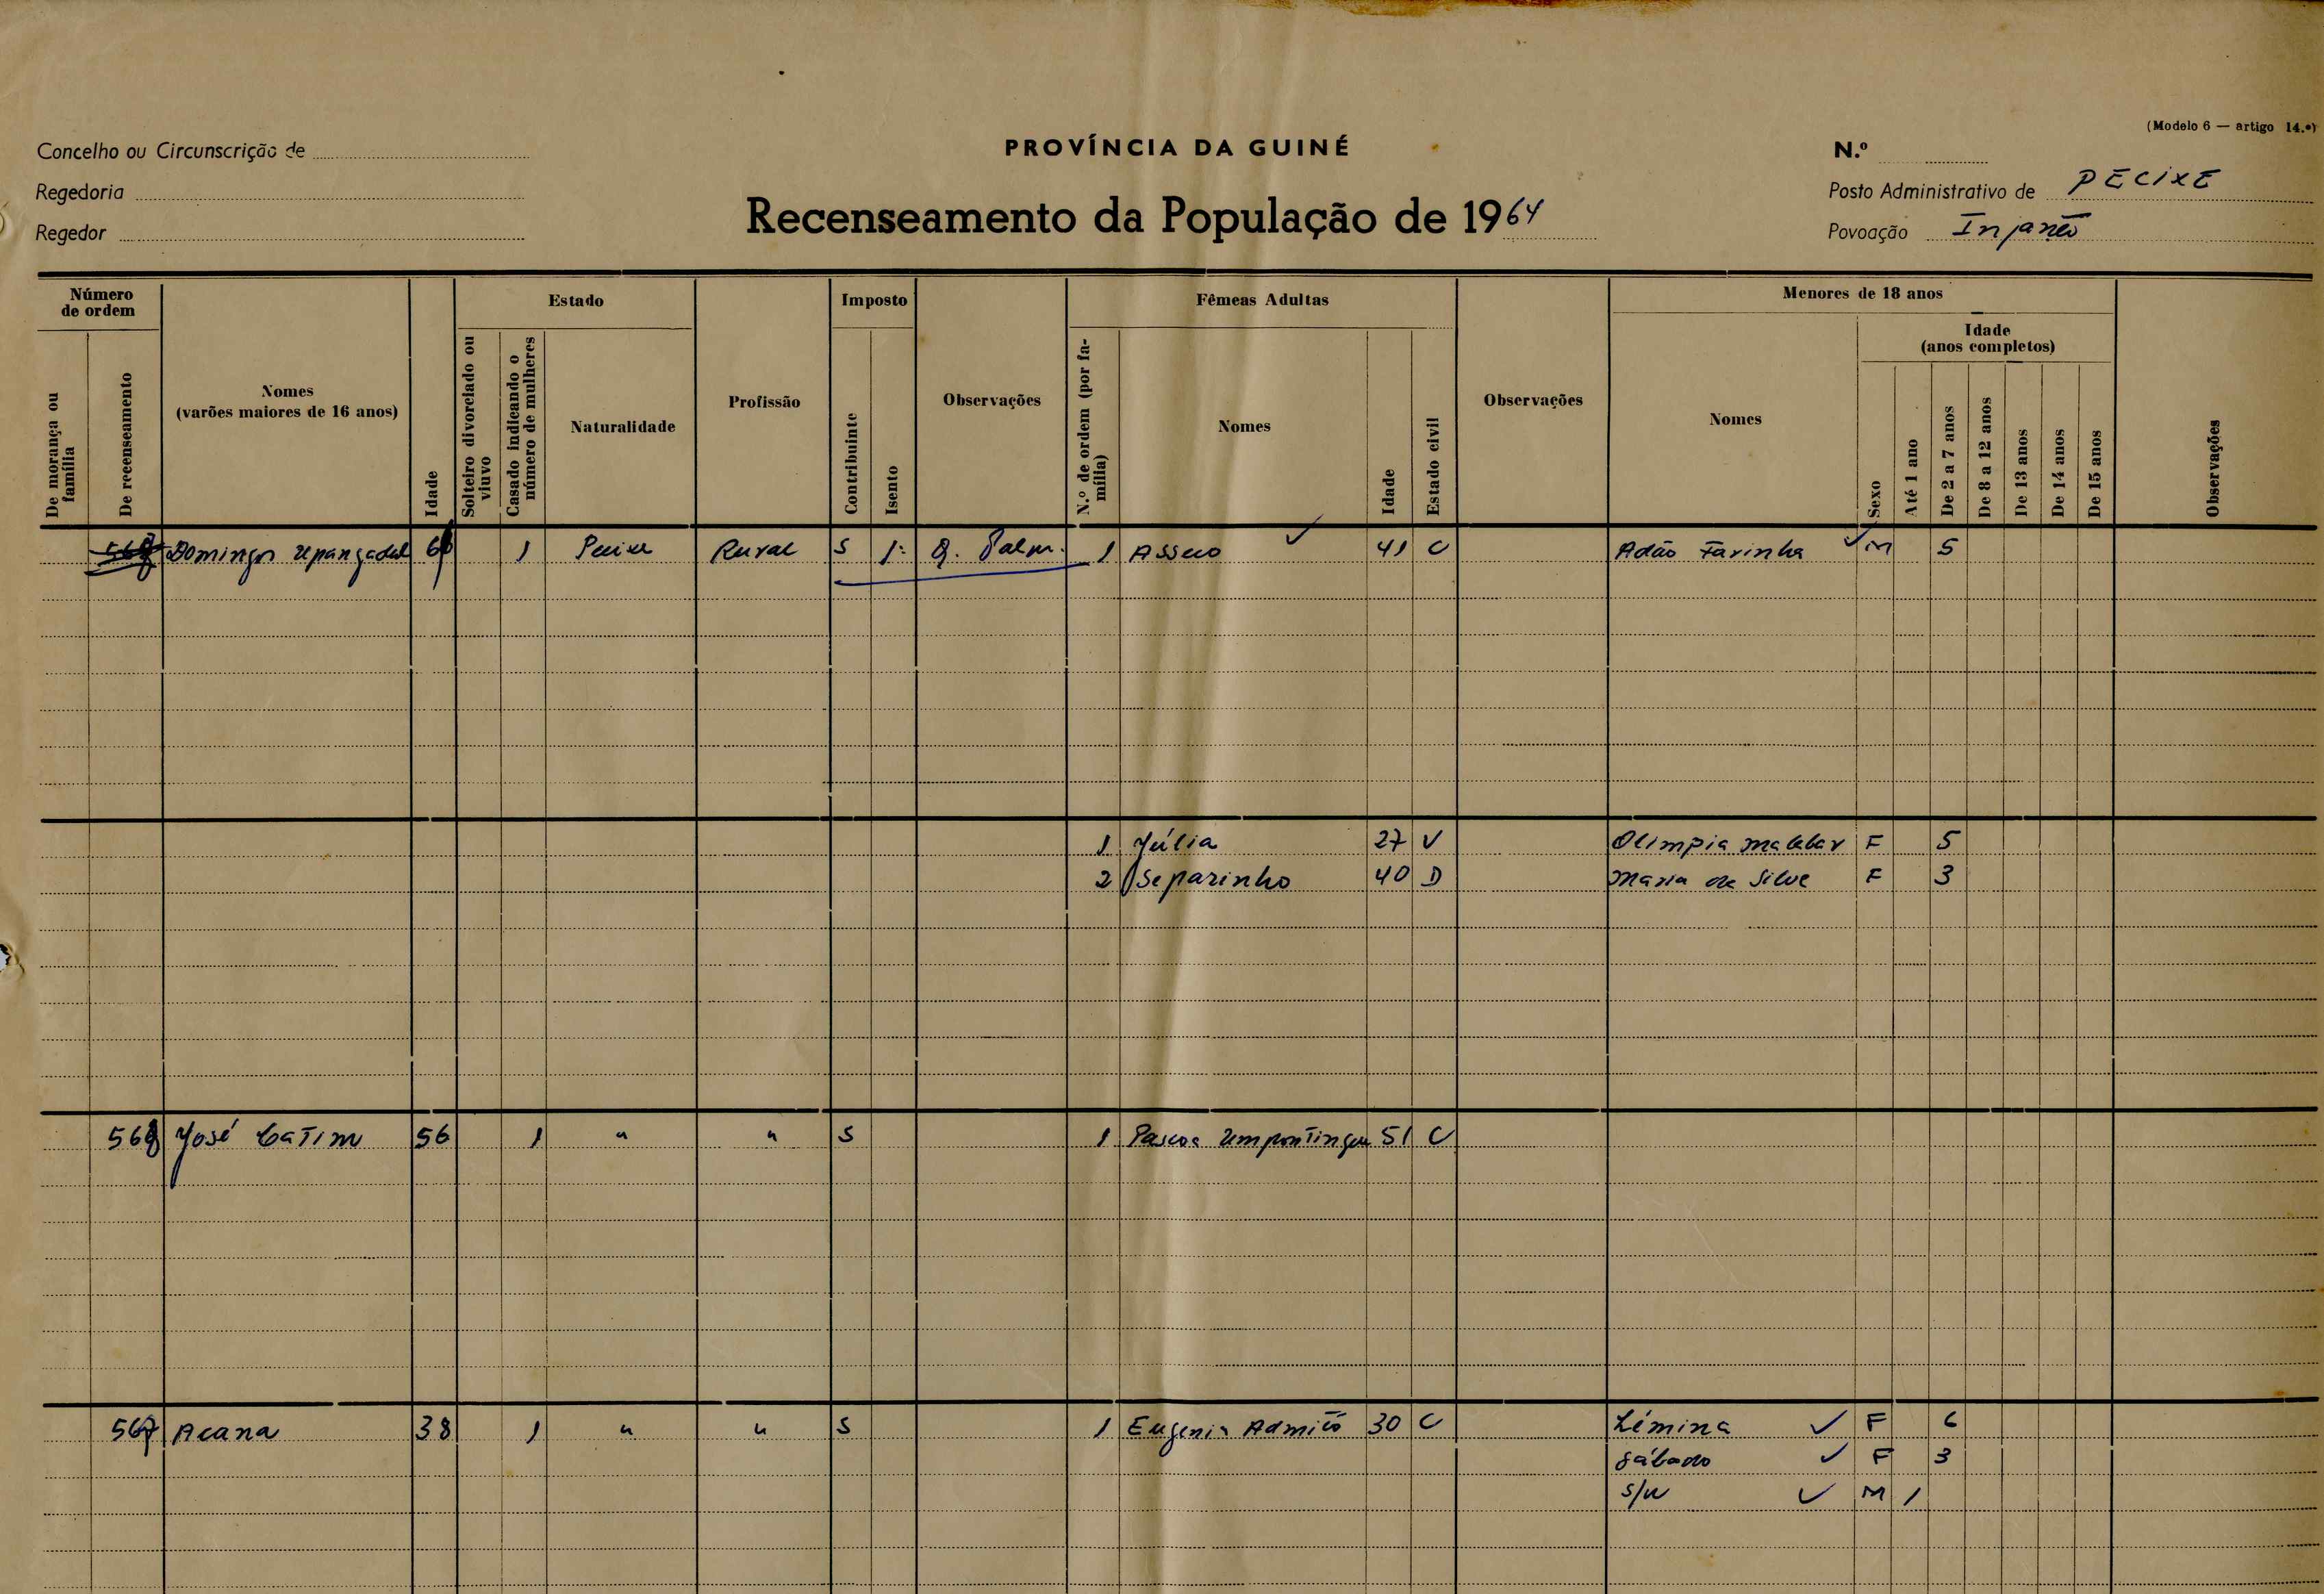 (Modelo 6 — artigo 14.º)
Concelho ou Circunscrição de
PROVÍNCIA DA GUINÉ
N.º
Regedoria
Posto Administrativo de PECIXE
Recenseamento da População de 1964
Regedor
Povoação
Número de ordem
De morança ou família
De recenseamento
Nomes
(varões maiores de 16 anos)
Idade
Estado
Solteiro divorciado ou viuvo
Casado indicando o número de mulheres
Naturalidade
Profissão
Imposto
Contribuinte
Isento
Observações
Fêmeas Adultas
N.º de ordem (por família)
Nomes
Idade
Estado civil
Observações
Menores de 18 anos
Nomes
Sexo
Idade
(anos completos)
Até 1 ano
De 2 a 7 anos
De 8 a 12 anos
De 13 anos
De 14 anos
De 15 anos
Observações
Domingos 1 Rural S 1 Asseco 41 C Adão Farinha M 5
1 Júlia 27 V Olimpia Malabar F 5
2 Separinho 40 D Maria da Silva F 3
568 José Catim 56 1 " " S 1 Pascoa 51 C
567 Acana 38 1 " " S 1 Eugenia 30 C Lémina F 6
Sábado F 3
S/N M 1